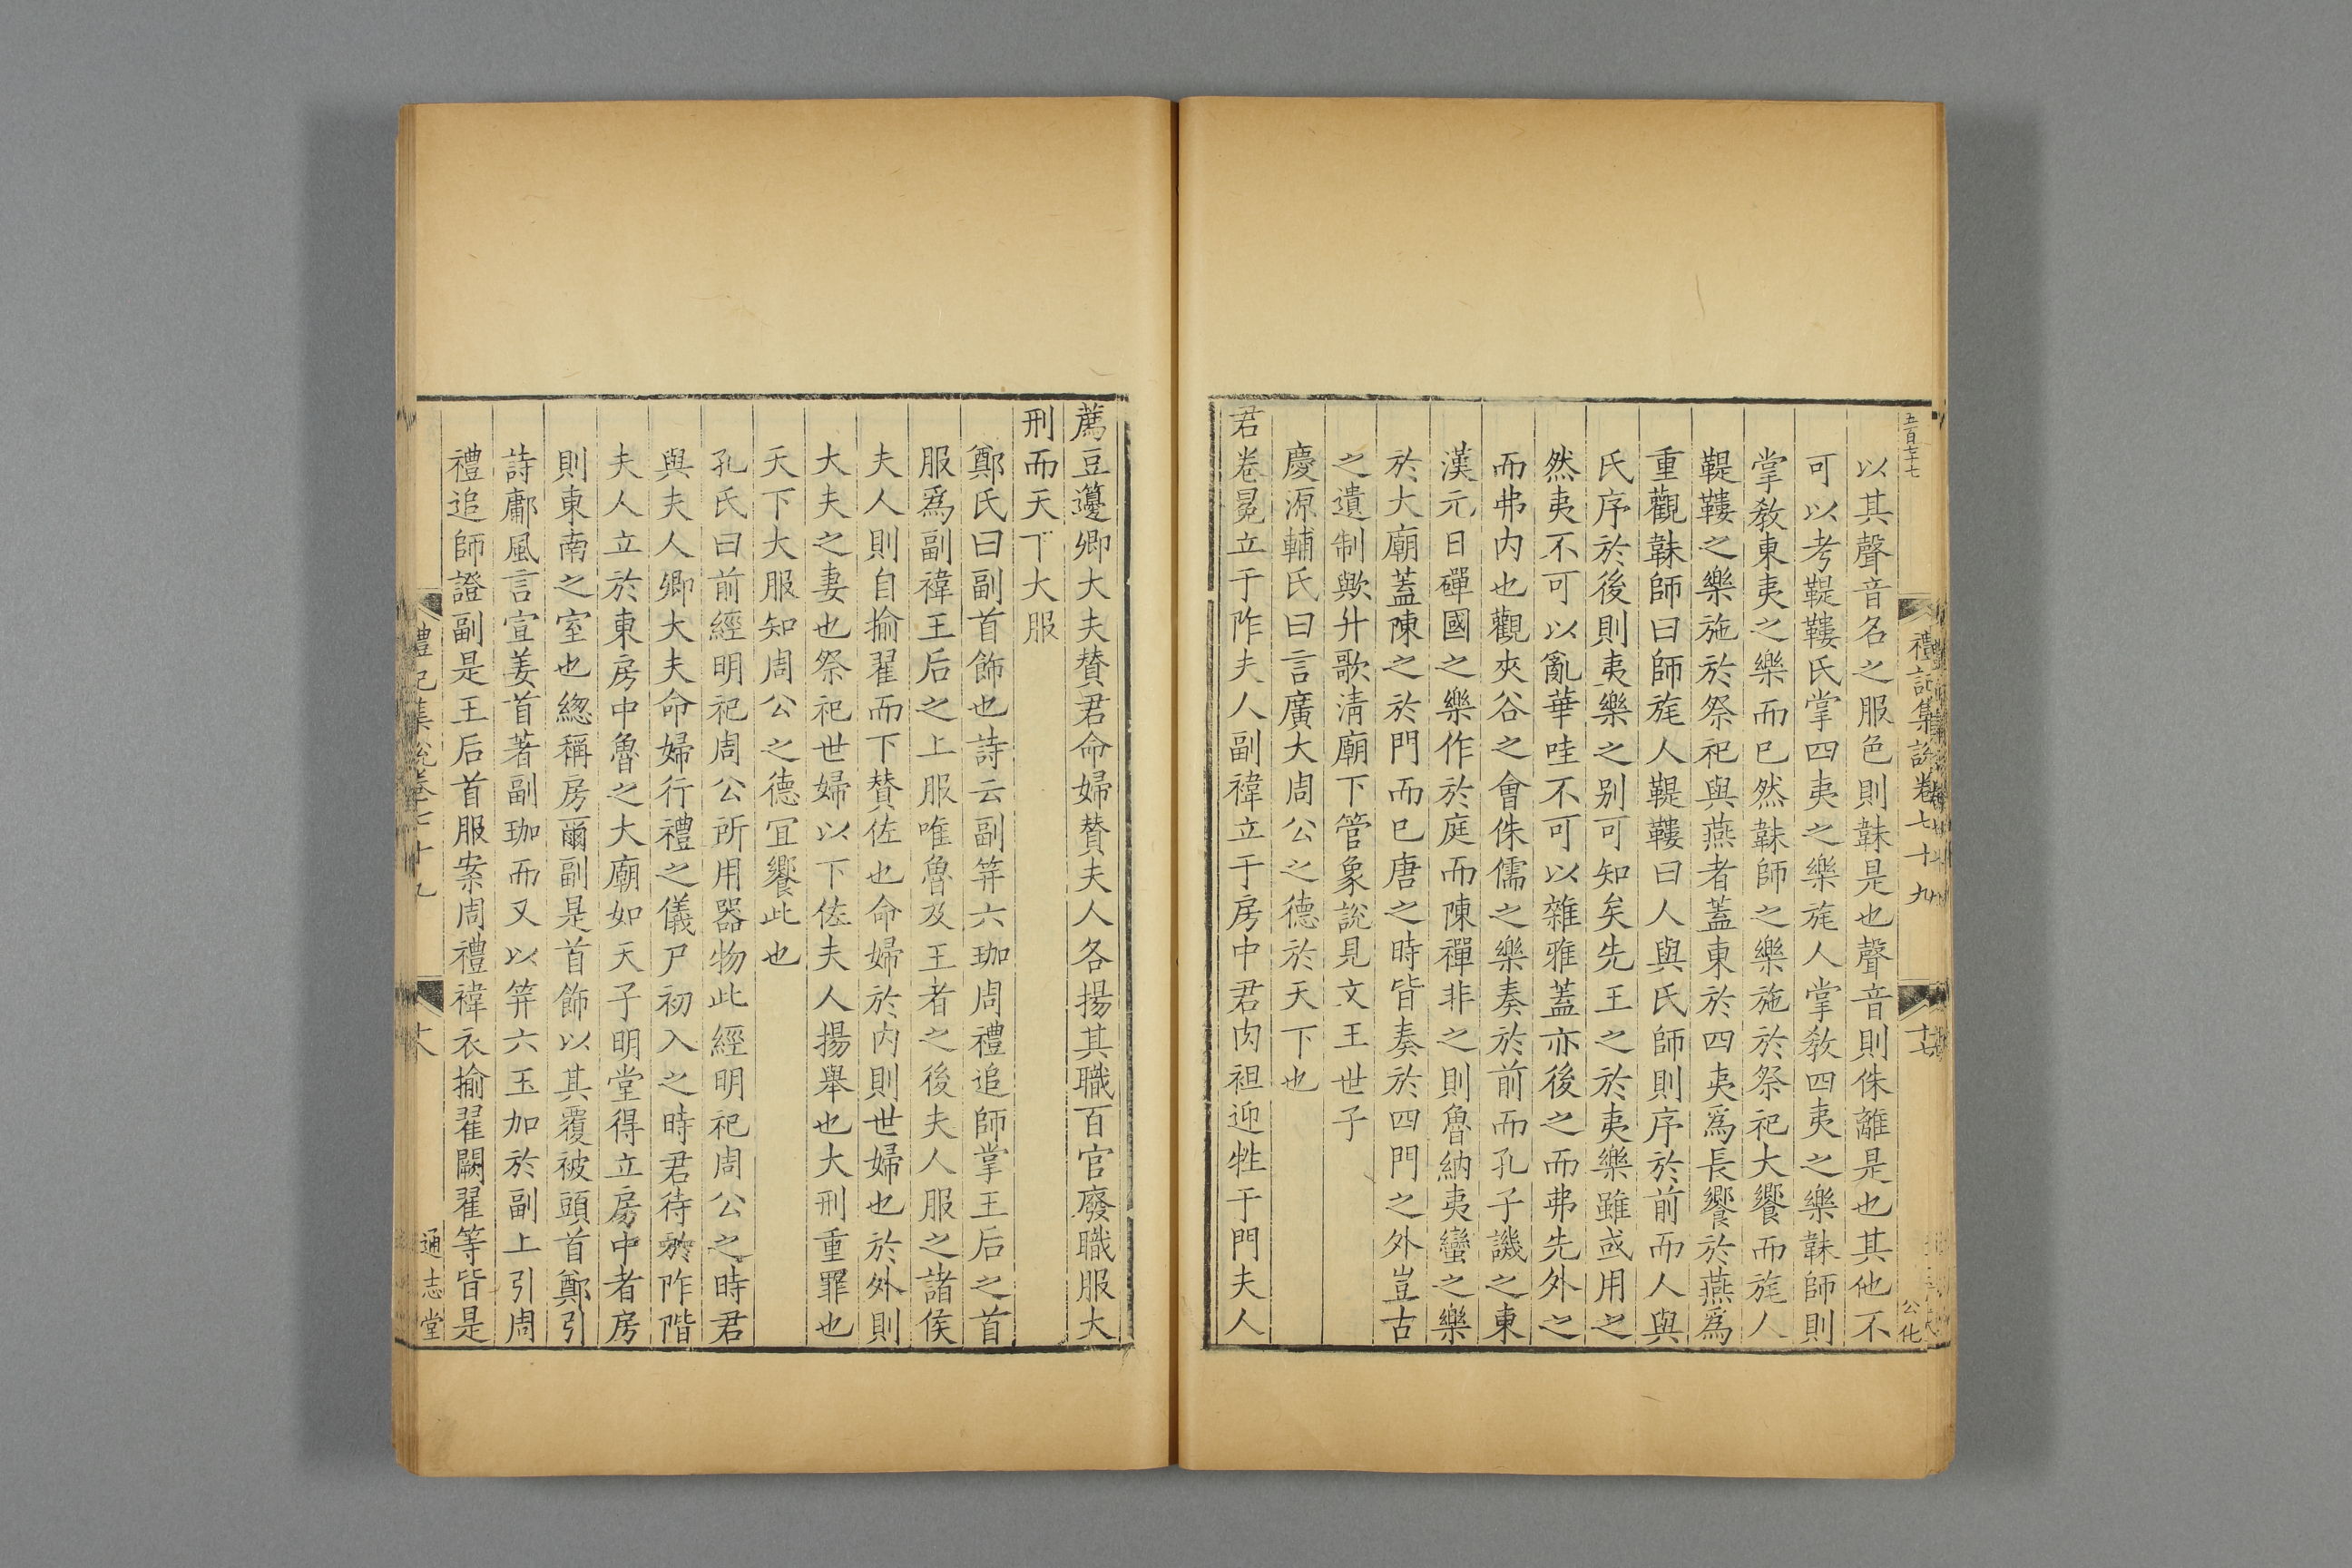 五百七十七
禮記集說卷七十九
十七
公化
以其聲音名之服色則韎是也聲音則侏離是也其他不
可以考鞮鞻氏掌四夷之樂旄人掌敎四夷之樂韎師則
掌敎東夷之樂而已然韎師之樂施於祭祀大饗而旄人
鞮鞻之樂施於祭祀與燕者蓋東於四夷爲長饗於燕爲
重觀韎師曰師旄人鞮鞻曰人與氏師則序於前而人與
氏序於後則夷樂之别可知矣先王之於夷樂雖或用之
然夷不可以亂華哇不可以雜雅蓋亦後之而弗先外之
而弗内也觀夾谷之會侏儒之樂奏於前而孔子譏之東
漢元日磾國之樂作於庭而陳禪非之則魯納夷蠻之樂
於大廟蓋陳之於門而已唐之時皆奏於四門之外豈古
之遺制歟升歌淸廟下管象說見文王世子
慶源輔氏曰言廣大周公之德於天下也
君卷冕立于阼夫人副褘立于房中君肉袒迎牲于門夫人
薦豆籩卿大夫賛君命婦賛夫人各揚其職百官廢職服大
刑而天下大服
鄭氏曰副首飾也詩云副笄六珈周禮追師掌王后之首
服爲副褘王后之上服唯魯及王者之後夫人服之諸侯
夫人則自揄翟而下賛佐也命婦於内則世婦也於外則
大夫之妻也祭祀世婦以下佐夫人揚舉也大刑重罪也
天下大服知周公之德宜饗此也
孔氏曰前經明祀周公所用器物此經明祀周公之時君
與夫人卿大夫命婦行禮之儀尸初入之時君待於阼階
夫人立於東房中魯之大廟如天子明堂得立房中者房
則東南之室也緫稱房爾副是首飾以其覆被頭首鄭引
詩鄘風言宣姜首著副珈而又以笄六玉加於副上引周
禮追師證副是王后首服案周禮褘衣揄翟闕翟等皆是
禮記集說卷七十九
十八
通志堂